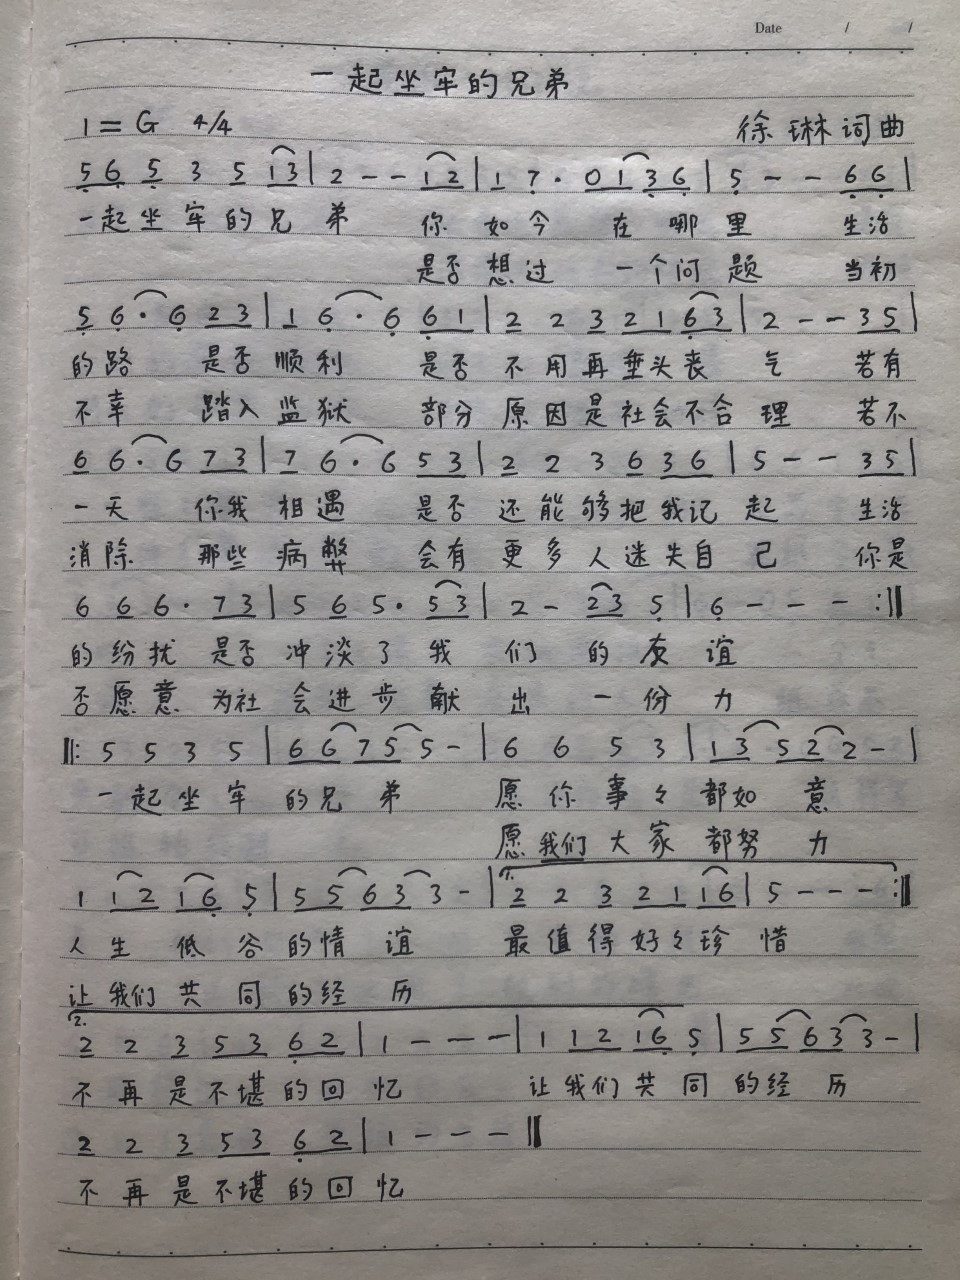 Date / /
一起坐牢的兄弟
1=G 4/4 徐琳词曲
5 6 5 3 5 1 3 | 2 - - 1 2 | 1 7 · 0 1 3 6 | 5 - - 6 6 |
一起坐牢的兄弟 你如今在哪里 生活
是否想过一个问题 当初
5 6 · 6 2 3 | 1 6 · 6 6 1 | 2 2 3 2 1 6 3 | 2 - - 3 5 |
的路 是否顺利 是否不用再垂头丧气 若有
不幸 踏入监狱 部分原因是社会不合理 若不
6 6 · 6 7 3 | 7 6 · 6 5 3 | 2 2 3 6 3 6 | 5 - - 3 5 |
一天 你我相遇 是否还能够把我记起 生活
消除 那些病弊 会有更多人迷失自己 你是
6 6 6 · 7 3 | 5 6 5 · 5 3 | 2 - 2 3 5 | 6 - - - :||
的纷扰 是否冲淡了我们的友谊
否愿意 为社会进步献出一份力
||: 5 5 3 5 | 6 6 7 5 5 - | 6 6 5 3 | 1 3 5 2 2 - |
一起坐牢的兄弟 愿你事々都如意
愿我们大家都努力
1 1 2 1 6 5 | 5 5 6 3 3 - | 1. 2 2 3 2 1 1 6 | 5 - - - :||
人生低谷的情谊 最值得好々珍惜
让我们共同的经历
2. 2 2 3 5 3 6 2 | 1 - - - | 1 1 2 1 6 5 | 5 5 6 3 3 - |
不再是不堪的回忆 让我们共同的经历
2 2 3 5 3 6 2 | 1 - - - ||
不再是不堪的回忆